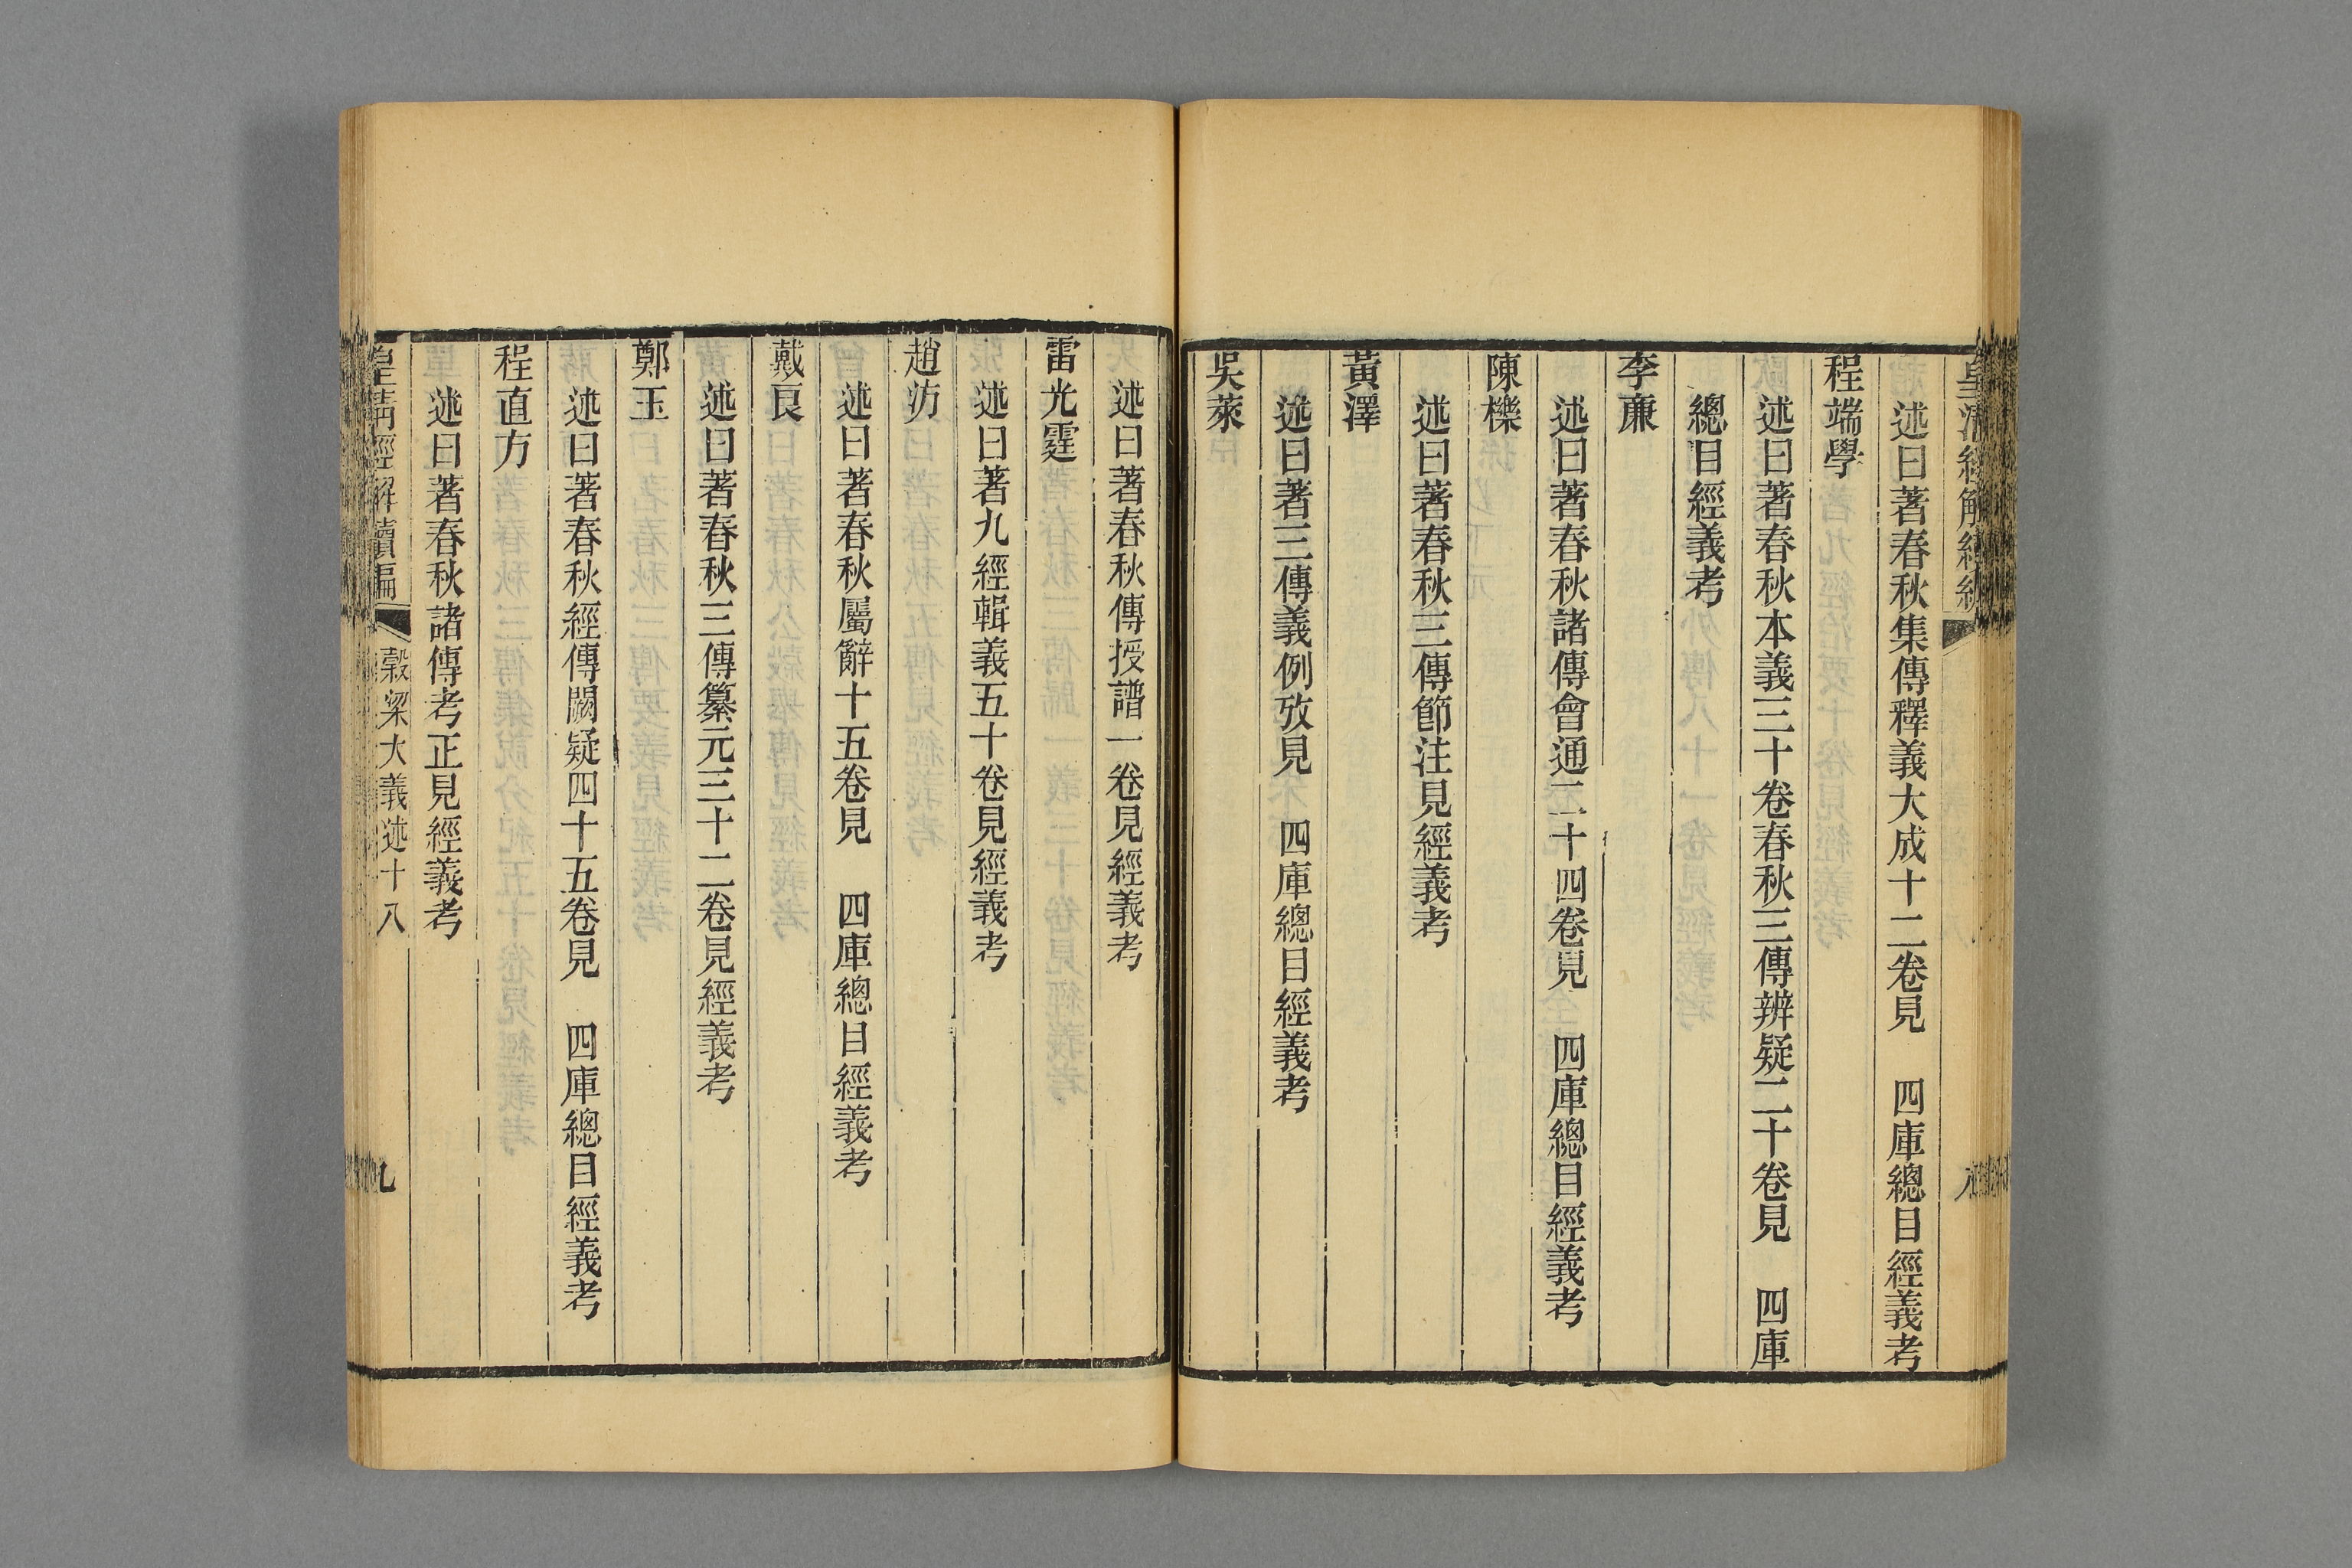 述曰著春秋集傳釋義大成十二卷見　四庫總目經義考
程端學
述曰著春秋本義三十卷春秋三傳辨疑二十卷見　四庫
總目經義考
李廉
述曰著春秋諸傳會通二十四卷見　四庫總目經義考
陳櫟
述曰著春秋三傳節注見經義考
黃澤
述曰著三傳義例攷見　四庫總目經義考
吳萊
述曰著春秋傳授譜一卷見經義考
雷光霆
述曰著九經輯義五十卷見經義考
趙汸
述曰著春秋屬辭十五卷見　四庫總目經義考
戴良
述曰著春秋三傳纂元三十二卷見經義考
鄭玉
述曰著春秋經傳闕疑四十五卷見　四庫總目經義考
程直方
述曰著春秋諸傳考正見經義考
皇清經解續編　穀梁大義述十八　九